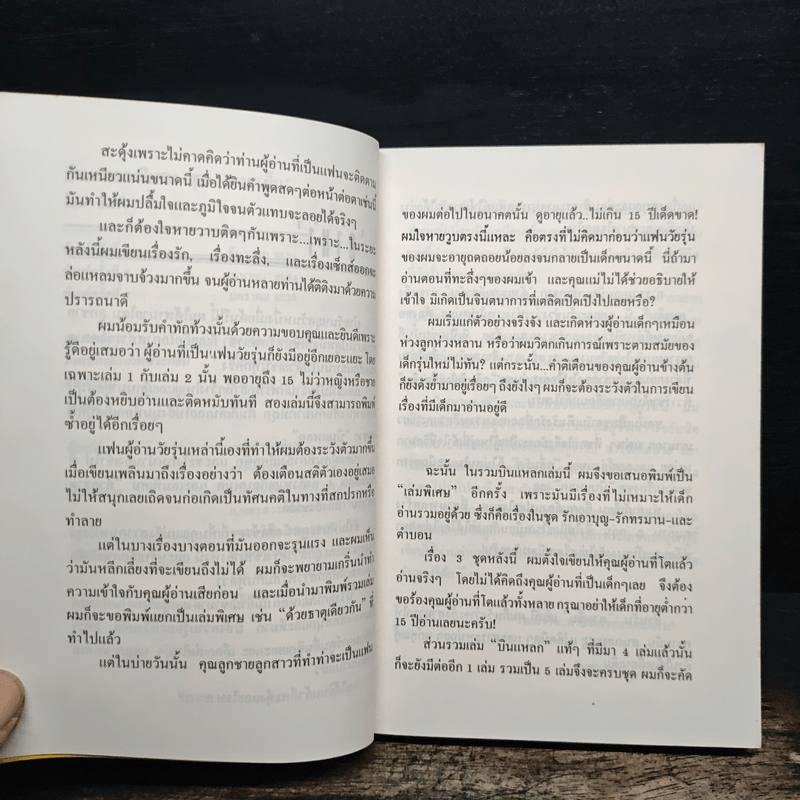 สะดุ้งเพราะไม่คาดคิดว่าท่านผู้อ่านที่เป็นแฟนจะติดตาม
กันเหนียวแน่นขนาดนี้ เมื่อได้ยินคำพูดสดๆต่อหน้าต่อตาเช่นนี้
มันทำให้ผมปลื้มใจและภูมิใจจนตัวแทบจะลอยได้จริงๆ
และก็ต้องใจหายวาบติดๆกันเพราะ...เพราะ...ในระยะ
หลังนี้ผมเขียนเรื่องรัก, เรื่องทะลึ่ง, และเรื่องเซ็กส์ออกจะ
ล่อแหลมจาบจ้วงมากขึ้น จนผู้อ่านหลายท่านได้ติติงมาด้วยความ
ปรารถนาดี
ผมน้อมรับคำทักท้วงนั้นด้วยความขอบคุณและยินดีเพราะ
รู้ดีอยู่เสมอว่า ผู้อ่านที่เป็น'แฟนวัยรุ่นก็ยังมีอยู่อีกเยอะแยะ โดย
เฉพาะเล่ม 1 กับเล่ม 2 นั้น พออายุถึง 15 ไม่ว่าหญิงหรือชาย
เป็นต้องหยิบอ่านและติดหนับทันที สองเล่มนี้จึงสามารถพิมพ์
ซ้ำอยู่ได้อีกเรื่อยๆ
แฟนผู้อ่านวัยรุ่นเหล่านี้เองที่ทำให้ผมต้องระวังตัวมากขึ้น
เมื่อเขียนเพลินมาถึงเรื่องอย่างว่า ต้องเตือนสติตัวเองอยู่เสมอ
ไม่ให้สนุกเลยเถิดจนก่อเกิดเป็นทัศนคติในทางที่สกปรกหรือ
ทำลาย
แต่ในบางเรื่องบางตอนที่มันออกจะรุนแรง และผมเห็น
ว่ามันหลีกเลี่ยงที่จะเขียนถึงไม่ได้ ผมก็จะพยายามเกริ่นนำทำ
ความเข้าใจกับคุณผู้อ่านเสียก่อน และเมื่อนำมาพิมพ์รวมเล่ม
ผมก็จะขอพิมพ์แยกเป็นเล่มพิเศษ เช่น “ด้วยธาตุเดียวกัน” ที่
ทำไปแล้ว
แต่ในบ่ายวันนั้น คุณลูกชายลูกสาวที่ทำท่าจะเป็นแฟน
ของผมต่อไปในอนาคตนั้น ดูอายุแล้ว..ไม่เกิน 15 ปีเด็ดขาด!
ผมใจหายวูบตรงนี้แหละ คือตรงที่ไม่คิดมาก่อนว่าแฟนวัยรุ่น
ของผมจะอายุถดถอยน้อยลงจนกลายเป็นเด็กขนาดนี้ นี่ถ้ามา
อ่านตอนที่ทะลึ่งๆของผมเข้า และคุณแม่ไม่ได้ช่วยอธิบายให้
เข้าใจ มิเกิดเป็นจินตนาการที่เตลิดเปิดเปิงไปเลยหรือ?
ผมเริ่มแก่ตัวอย่างจริงจัง และเกิดห่วงผู้อ่านเด็กๆเหมือน
ห่วงลูกห่วงหลาน หรือว่าผมวิตกเกินการณ์เพราะตามสมัยของ
เด็กรุ่นใหม่ไม่ทัน? แต่กระนั้น...คำติเตือนของคุณผู้อ่านข้างต้น
ก็ยังดังย้ำมาอยู่เรื่อยๆ ถึงยังไงๆ ผมก็จะต้องระวังตัวในการเขียน
เรื่องที่มีเด็กมาอ่านอยู่ดี
ฉะนั้น ในรวมบินแหลกเล่มนี้ ผมจึงขอเสนอพิมพ์เป็น
“เล่มพิเศษ” อีกครั้ง เพราะมันมีเรื่องที่ไม่เหมาะให้เด็ก
อ่านรวมอยู่ด้วย ซึ่งก็คือเรื่องในชุด รักเอาบุญ-รักทรมาน-และ
ตำบอน
เรื่อง 3 ชุดหลังนี้ ผมตั้งใจเขียนให้คุณผู้อ่านที่โตแล้ว
อ่านจริงๆ โดยไม่ได้คิดถึงคุณผู้อ่านที่เป็นเด็กๆเลย จึงต้อง
ขอร้องคุณผู้อ่านที่โตแล้วทั้งหลาย กรุณาอย่าให้เด็กที่อายุต่ำกว่า
15 ปีอ่านเลยนะครับ!
ส่วนรวมเล่ม “บินแหลก” แท้ๆ ที่มีมา 4 เล่มแล้วนั้น
ก็จะยังมีต่ออีก 1 เล่ม รวมเป็น 5 เล่มจึงจะครบชุด ผมก็จะคัด